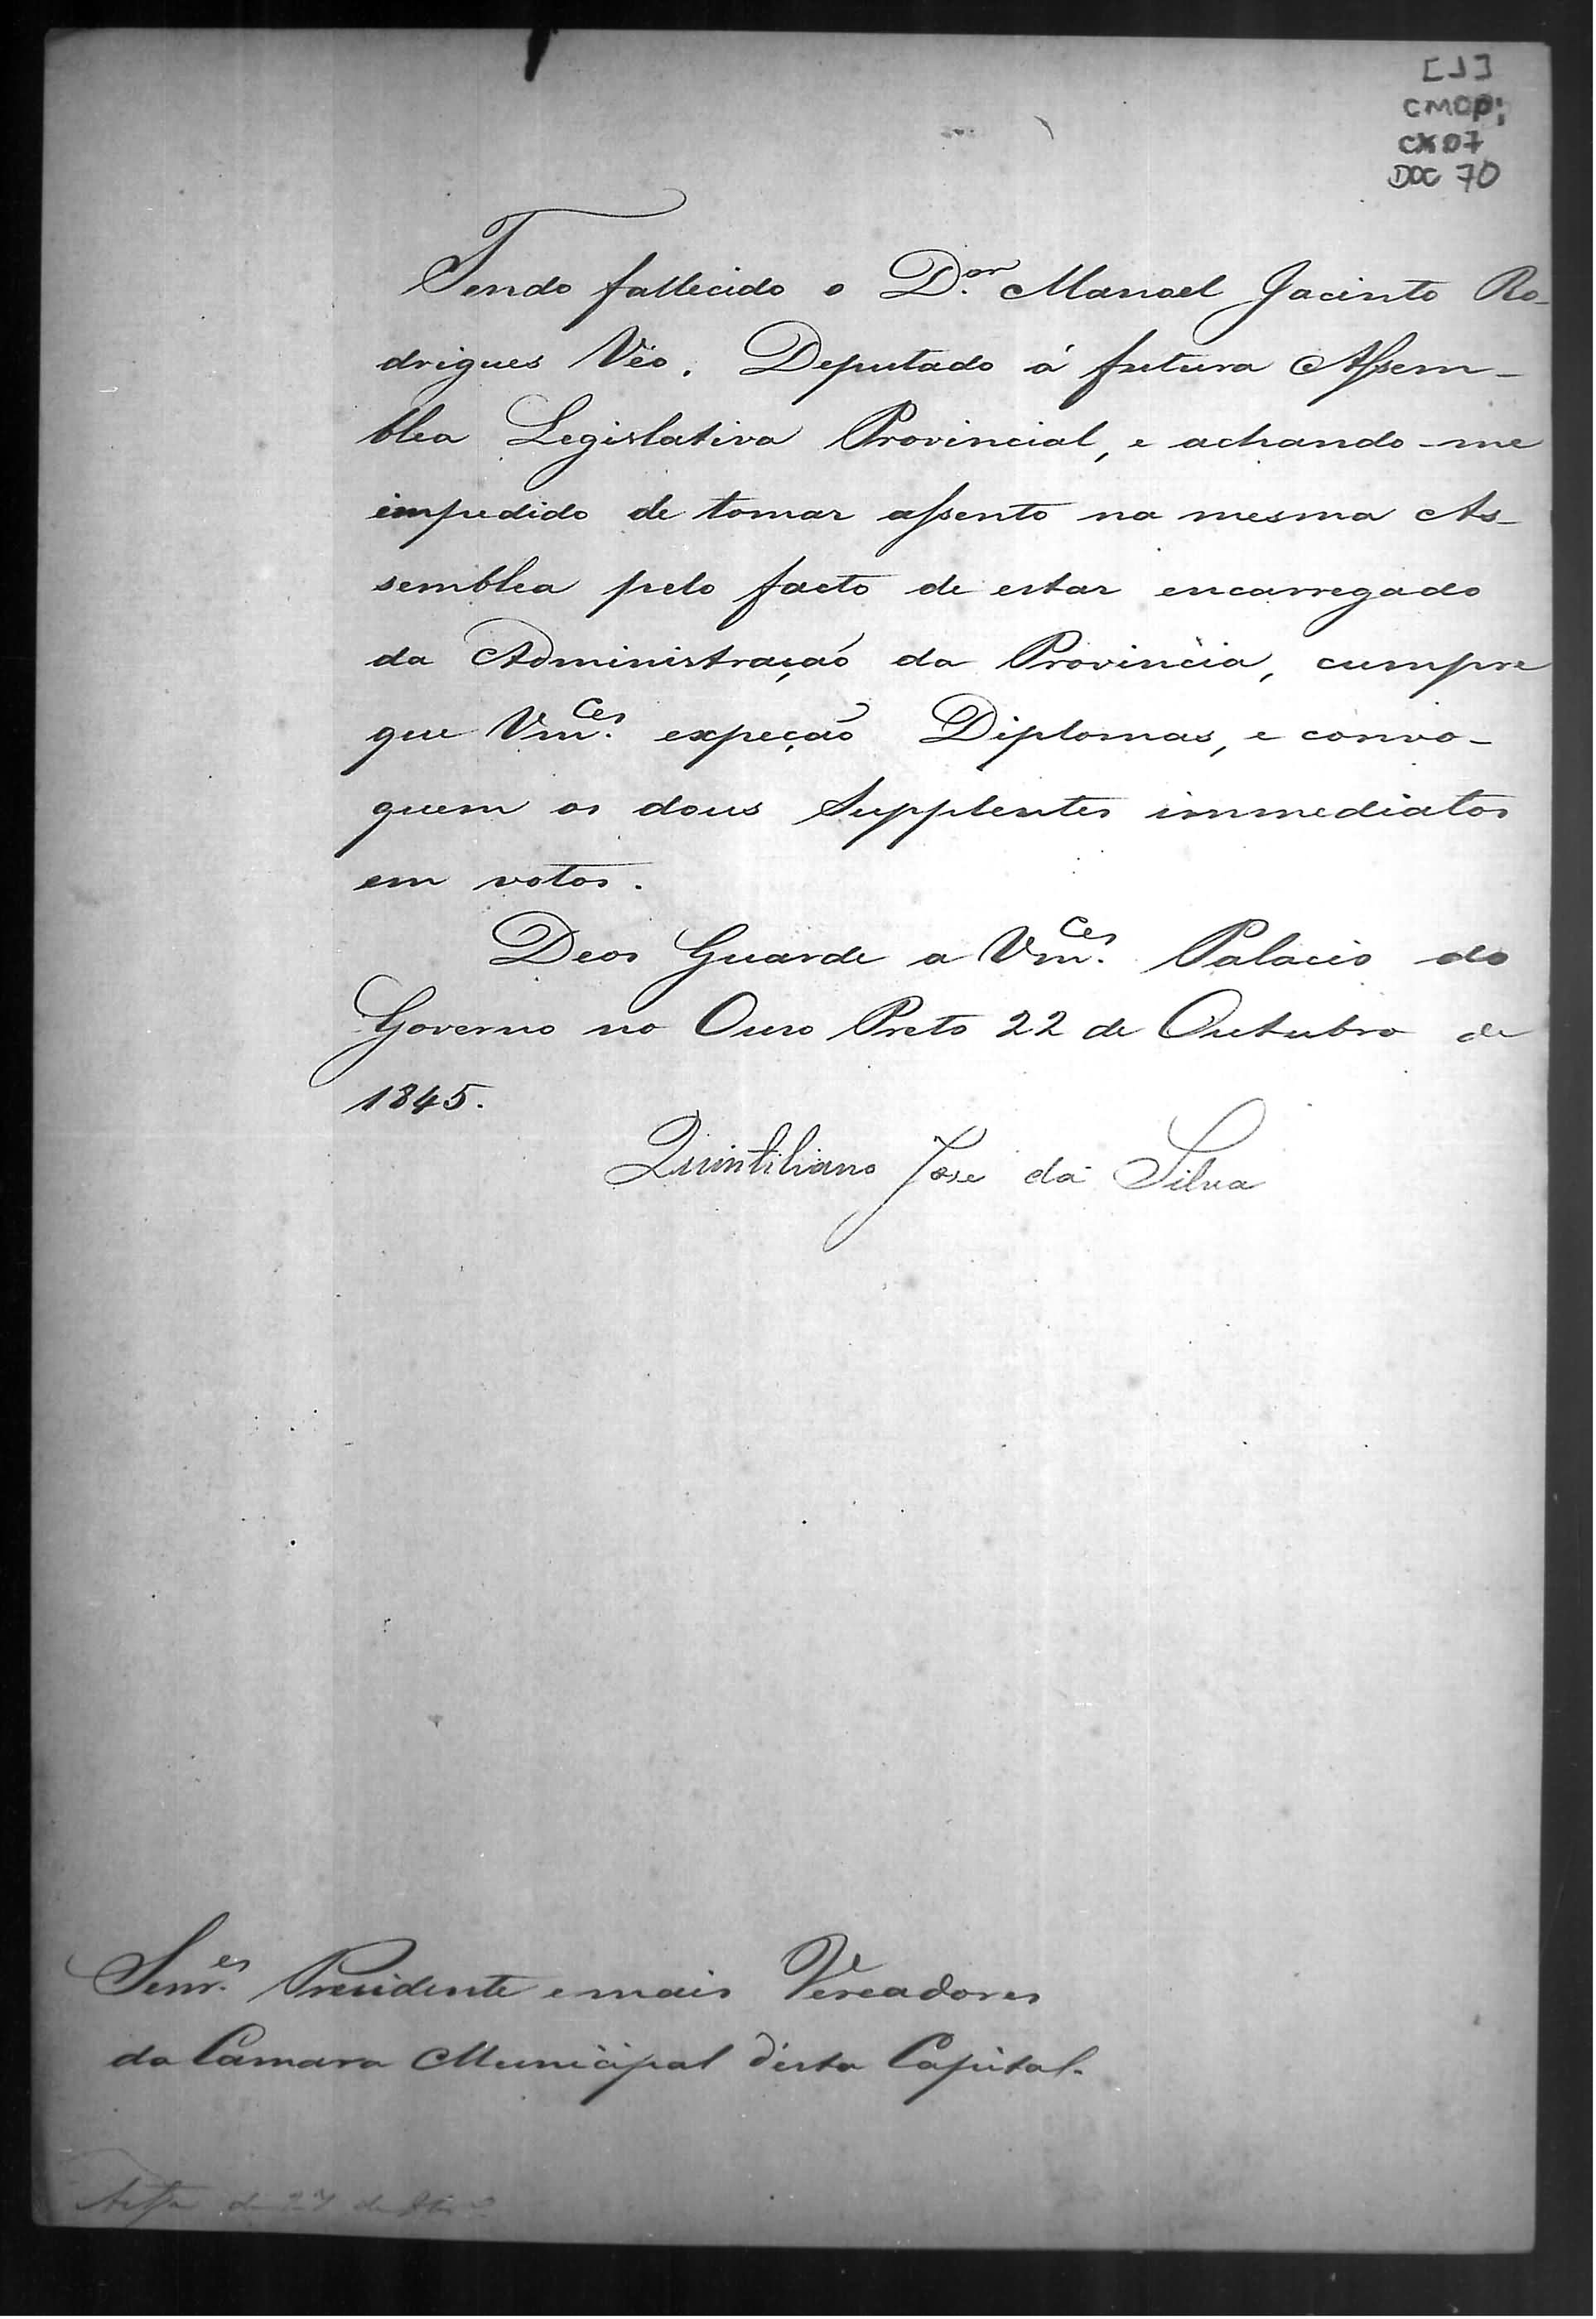 [1]
CMOP;
CX 07
DOC 70
Tendo fallecido o D.or Manoel Jacinto Ro-
drigues Véo, Deputado á futura Assem-
blea Legislativa Provincial, e achando-me
impedido de tomar assento na mesma As-
semblea pelo facto de estar encarregado
da Administração da Provincia, cumpre
que Vm.ces expeção Diplomas, e convo-
quem os dous Supplentes immediatos
em votos.
Deos Guarde a Vm.ces Palacio do
Governo no Ouro Preto 22 de Outubro de
1845.
Quintiliano Jose da Silva
Senr.es Presidente e mais Vereadores
da Camara Municipal d'esta Capital.
de 27 de